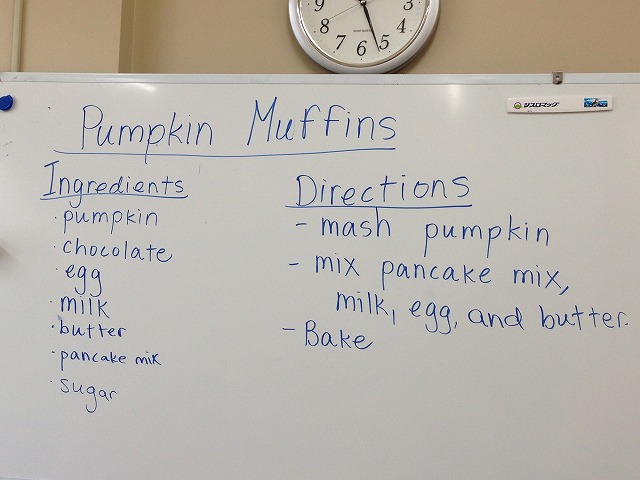 9
3
8
4
7
6
5
ジスロマック
Pumpkin Muffins
Ingredients
· pumpkin
· chocolate
· egg
· milk
· butter
· pancake mix
· sugar
Directions
- mash pumpkin
- mix pancake mix,
milk, egg, and butter.
- Bake